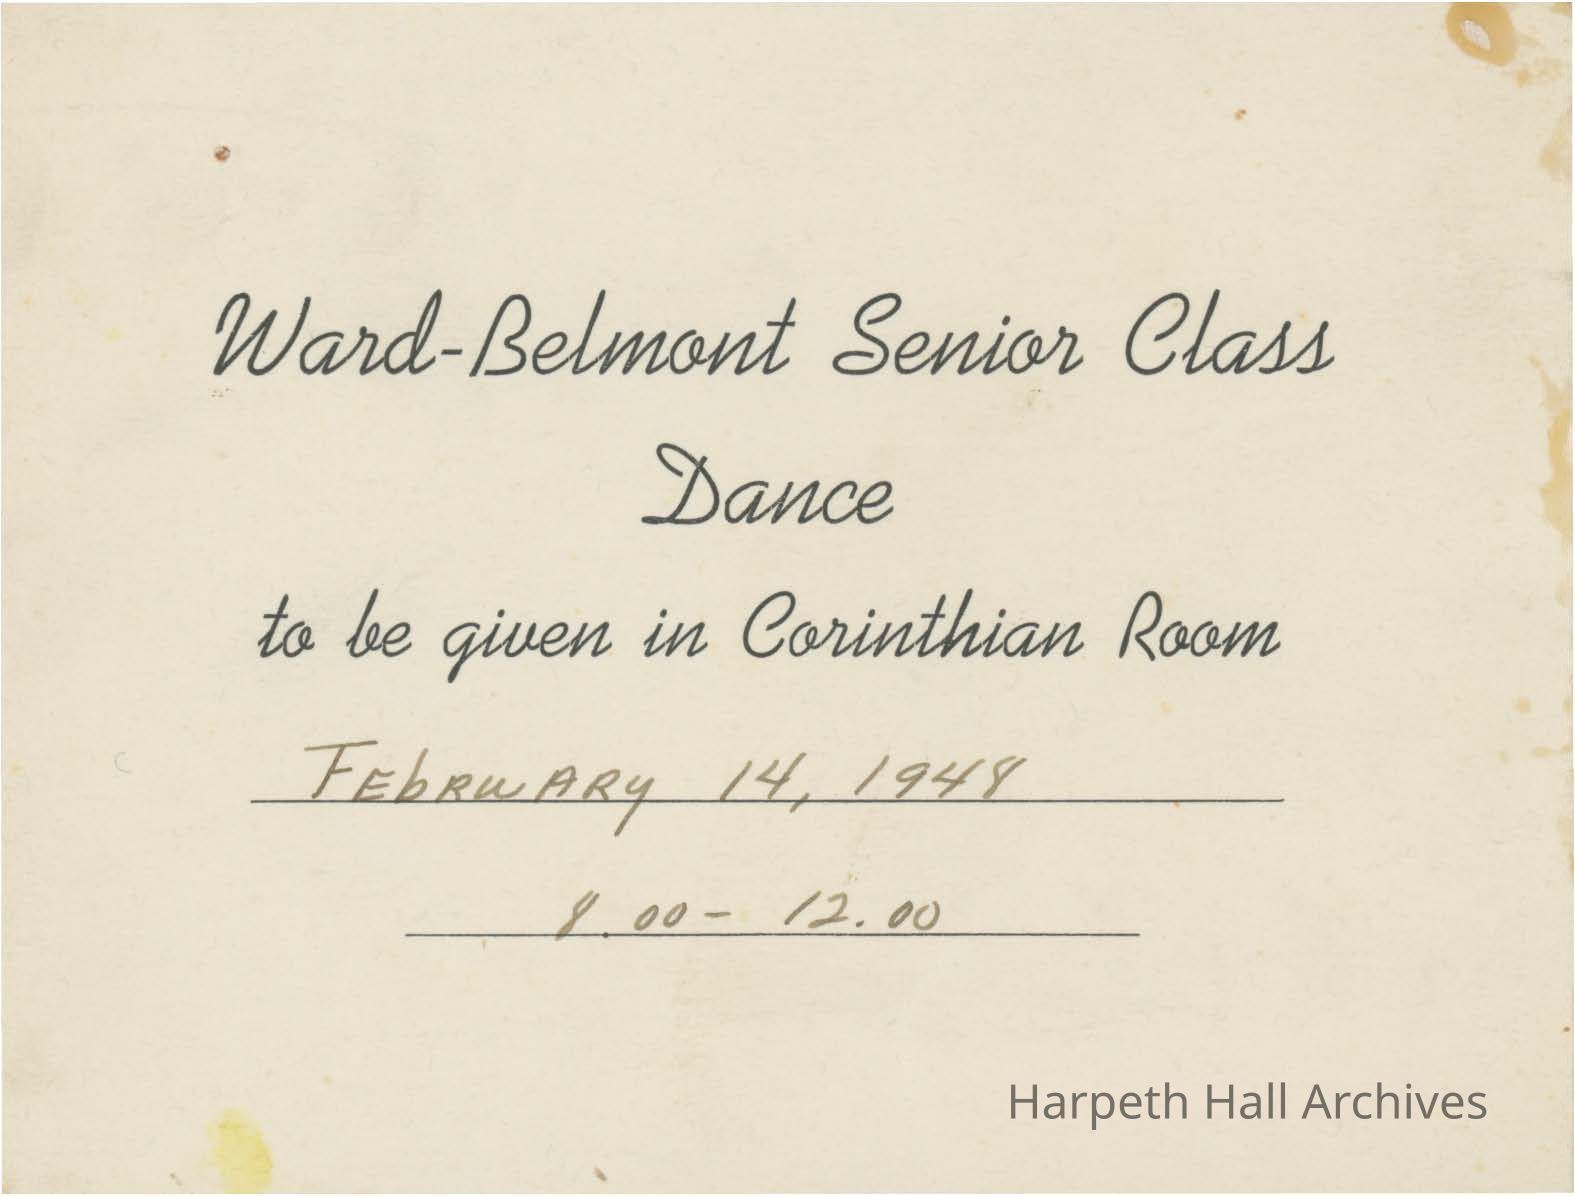 Ward-Belmont Senior Class
Dance
to be given in Corinthian Room
February 14, 1948
8.00- 12.00
Harpeth Hall Archives